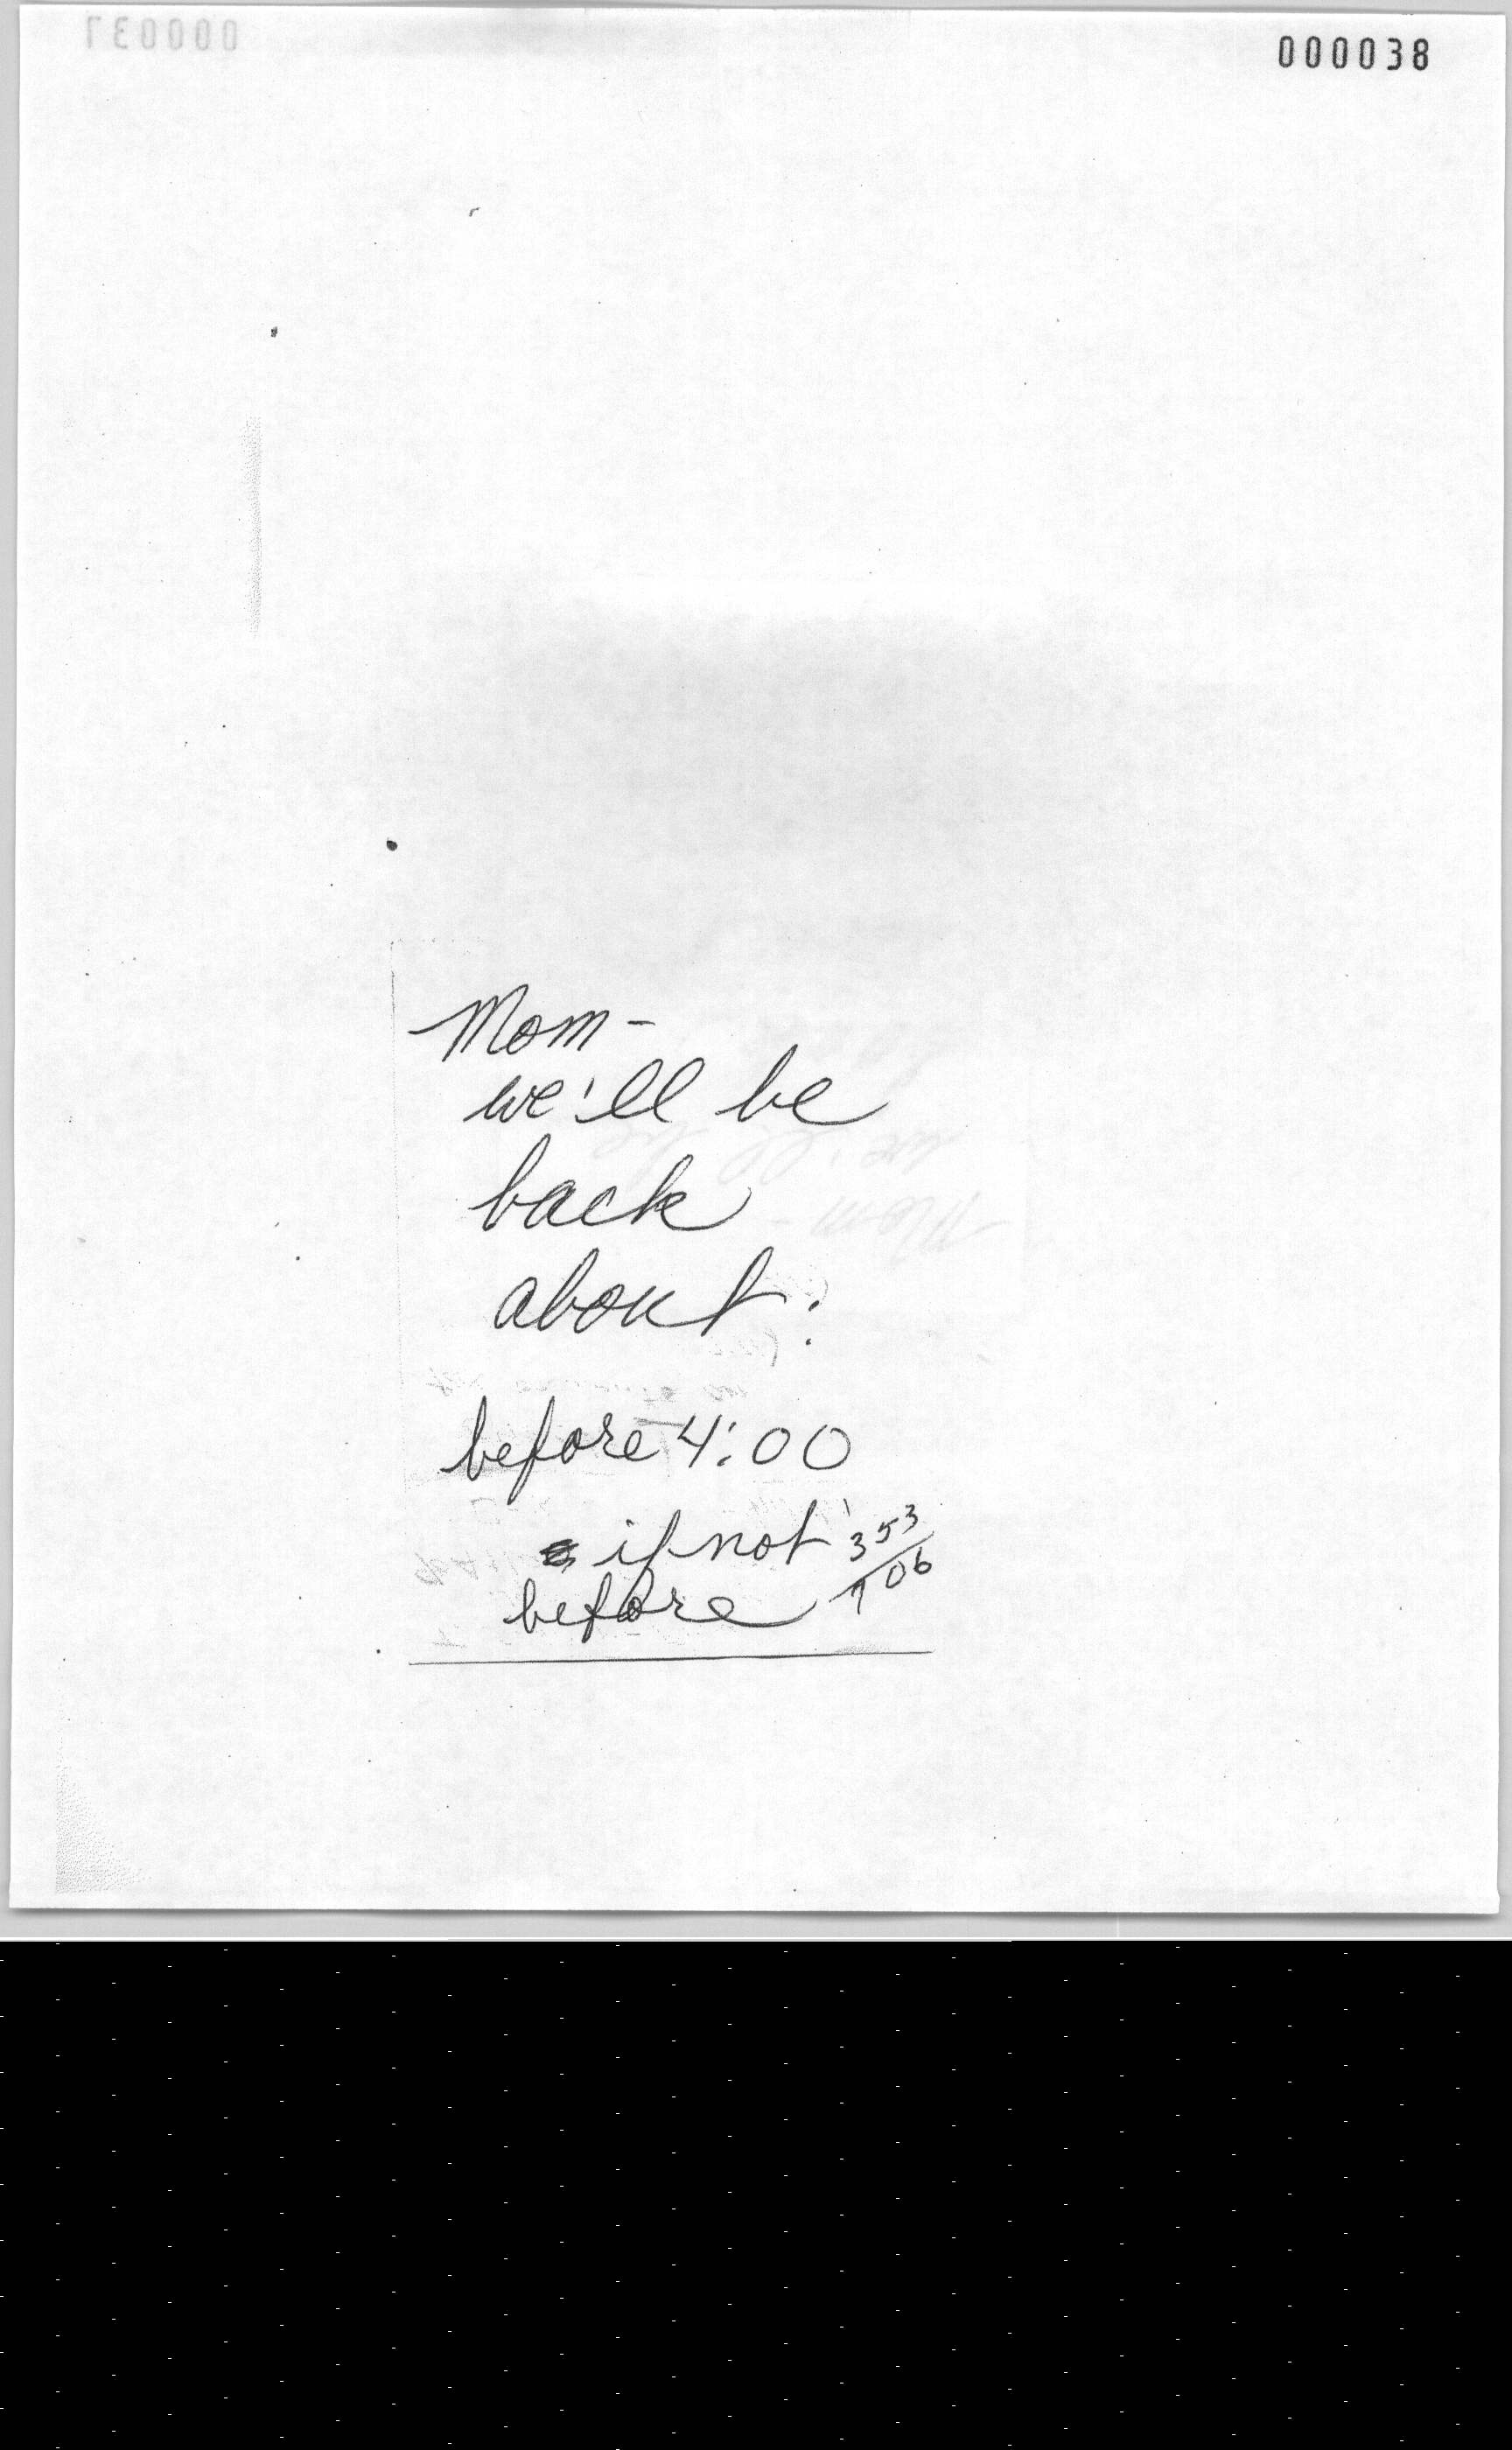 000038
Mom-
we'll be
back
about:
before 4:00
if not
before
353
706